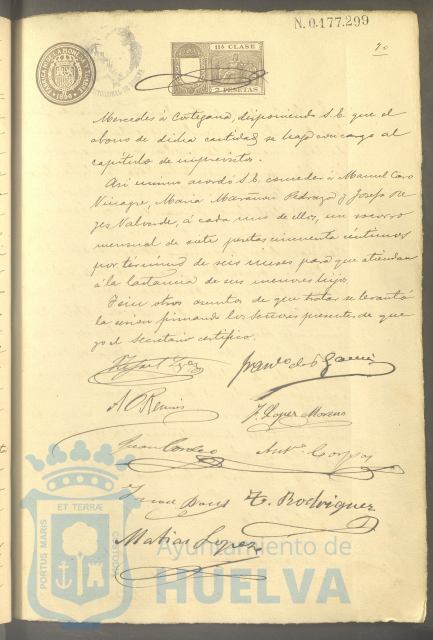 N. 0.177.299
11ª CLASE
2 PESETAS
1896
Mercedes á Cortegana, disponiendo S.E. que el
abono de dicha cantidad se haga con cargo al
capítulo de imprevistos.
Asi mismo acordó S.E. conceder á Manuel Caro
Vinagre, Maria Marañon Pedraza y Josefa Re-
yes Valverde, á cada uno de ellos, un socorro
mensual de siete pesetas cincuenta céntimos
por término de seis meses para que atiendan
á la lactancia de sus menores hijos.
Y sin otros asuntos de que tratar se levantó
la sesión firmando los señores presentes de que
yo el Secretario certifico.
Garcia
J. Lopez Moreno
T. Rodriguez
Matias Lopez
PORTUS MARIS
ET TERRÆ
CUSTODIA
Ayuntamiento de
HUELVA